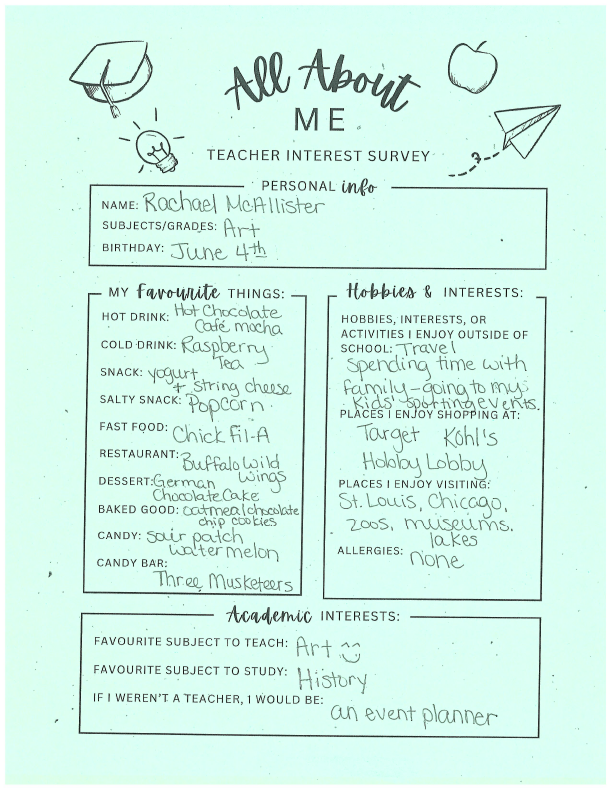 All About
ME
TEACHER INTEREST SURVEY
PERSONAL info
NAME: Rachael McAllister
SUBJECTS/GRADES: Art
BIRTHDAY: June 4th
MY Favourite THINGS:
HOT DRINK: Hot Chocolate
Café mocha
COLD DRINK: Raspberry
Tea
SNACK: yogurt
+ string cheese
SALTY SNACK: Popcorn
FAST FOOD: Chick Fil-A
RESTAURANT: Buffalo Wild
Wings
DESSERT: German
Chocolate Cake
BAKED GOOD: oatmeal chocolate
chip cookies
CANDY: sour patch
watermelon
CANDY BAR:
Three Musketeers
Hobbies & INTERESTS:
HOBBIES, INTERESTS, OR
ACTIVITIES I ENJOY OUTSIDE OF
SCHOOL: Travel
spending time with
family - going to my
kids' sporting events.
PLACES I ENJOY SHOPPING AT:
Target Kohl's
Hobby Lobby
PLACES I ENJOY VISITING:
St. Louis, Chicago,
zoos, museums.
lakes
ALLERGIES: none
Academic INTERESTS:
FAVOURITE SUBJECT TO TEACH: Art
FAVOURITE SUBJECT TO STUDY: History
IF I WEREN'T A TEACHER, I WOULD BE:
an event planner